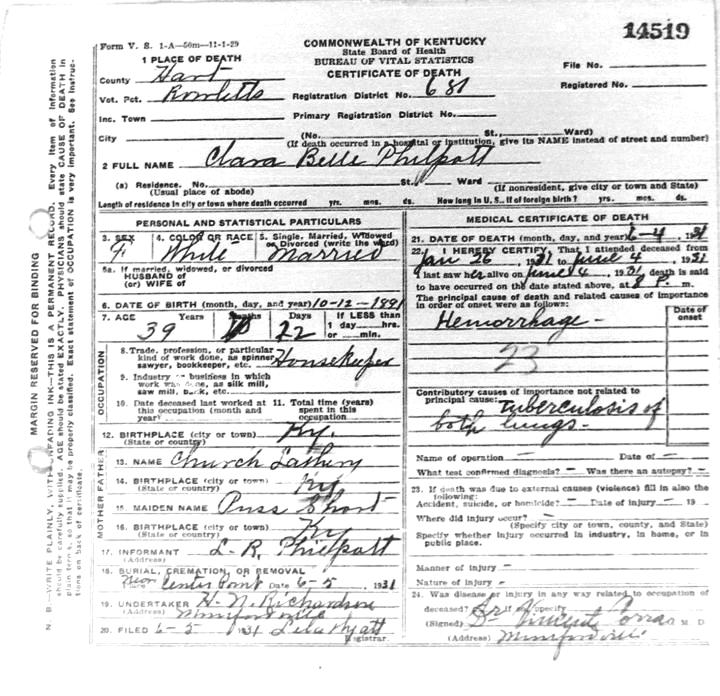 14519
Form V. S. 1-A—50m—11-1-29
COMMONWEALTH OF KENTUCKY
State Board of Health
BUREAU OF VITAL STATISTICS
CERTIFICATE OF DEATH
1 PLACE OF DEATH
County Hart
Vot. Pct. Rowletts
Inc. Town
City
Registration District No. 681
Primary Registration District No.
File No.
Registered No.
(No. St., Ward)
(If death occurred in a hospital or institution, give its NAME instead of street and number)
2 FULL NAME Clara Belle Philpott
(a) Residence. No. St., Ward
(Usual place of abode)
(If nonresident, give city or town and State)
Length of residence in city or town where death occurred yrs. mos. ds. How long in U. S., if of foreign birth? yrs. mos. ds.
PERSONAL AND STATISTICAL PARTICULARS
3. SEX
F
4. COLOR OR RACE
White
5. Single, Married, Widowed or Divorced (write the word)
Married
5a. If married, widowed, or divorced
HUSBAND of
(or) WIFE of
6. DATE OF BIRTH (month, day, and year) 10-12-1891
7. AGE
39 Years Months 22 Days
If LESS than
1 day hrs.
or min.
OCCUPATION
8. Trade, profession, or particular
kind of work done, as spinner,
sawyer, bookkeeper, etc. Housekeeper
9. Industry or business in which
work was done, as silk mill,
saw mill, bank, etc.
10. Date deceased last worked at
this occupation (month and
year)
11. Total time (years)
spent in this
occupation
12. BIRTHPLACE (city or town) Ky.
(State or country)
MOTHER FATHER
13. NAME Church
14. BIRTHPLACE (city or town) Ky
(State or country)
15. MAIDEN NAME Puss Short
16. BIRTHPLACE (city or town) Ky
(State or country)
17. INFORMANT L. R. Philpott
(Address)
18. BURIAL, CREMATION, OR REMOVAL
Place Center Point Date 6-5 1931
19. UNDERTAKER H. N. Richardson
(Address) Munfordville
20. FILED 6-5 1931 Lela Wyatt
Registrar.
MEDICAL CERTIFICATE OF DEATH
21. DATE OF DEATH (month, day, and year) 6-4 1931
22. I HEREBY CERTIFY, That I attended deceased from
Jan 26, 1931 to June 4, 1931
I last saw her alive on June 4, 1931, death is said
to have occurred on the date stated above, at 8 P. m.
The principal cause of death and related causes of importance
in order of onset were as follows:
Date of
onset
Hemorrhage -
23
Contributory causes of importance not related to
principal cause: Tuberculosis of
both lungs -
Name of operation — Date of —
What test confirmed diagnosis? — Was there an autopsy? —
23. If death was due to external causes (violence) fill in also the
following:
Accident, suicide, or homicide? — Date of injury — 19
Where did injury occur? —
(Specify city or town, county, and State)
Specify whether injury occurred in industry, in home, or in
public place.
Manner of injury —
Nature of injury -
24. Was disease or injury in any way related to occupation of
deceased? If so, specify
(Signed) Dr Vincent M D
(Address) Munfordville
MARGIN RESERVED FOR BINDING
N. B.—WRITE PLAINLY, WITH UNFADING INK—THIS IS A PERMANENT RECORD. Every item of information
should be carefully supplied. AGE should be stated EXACTLY. PHYSICIANS should state CAUSE OF DEATH in
plain terms, so that it may be properly classified. Exact statement of OCCUPATION is very important. See instruc-
tions on back of certificate.